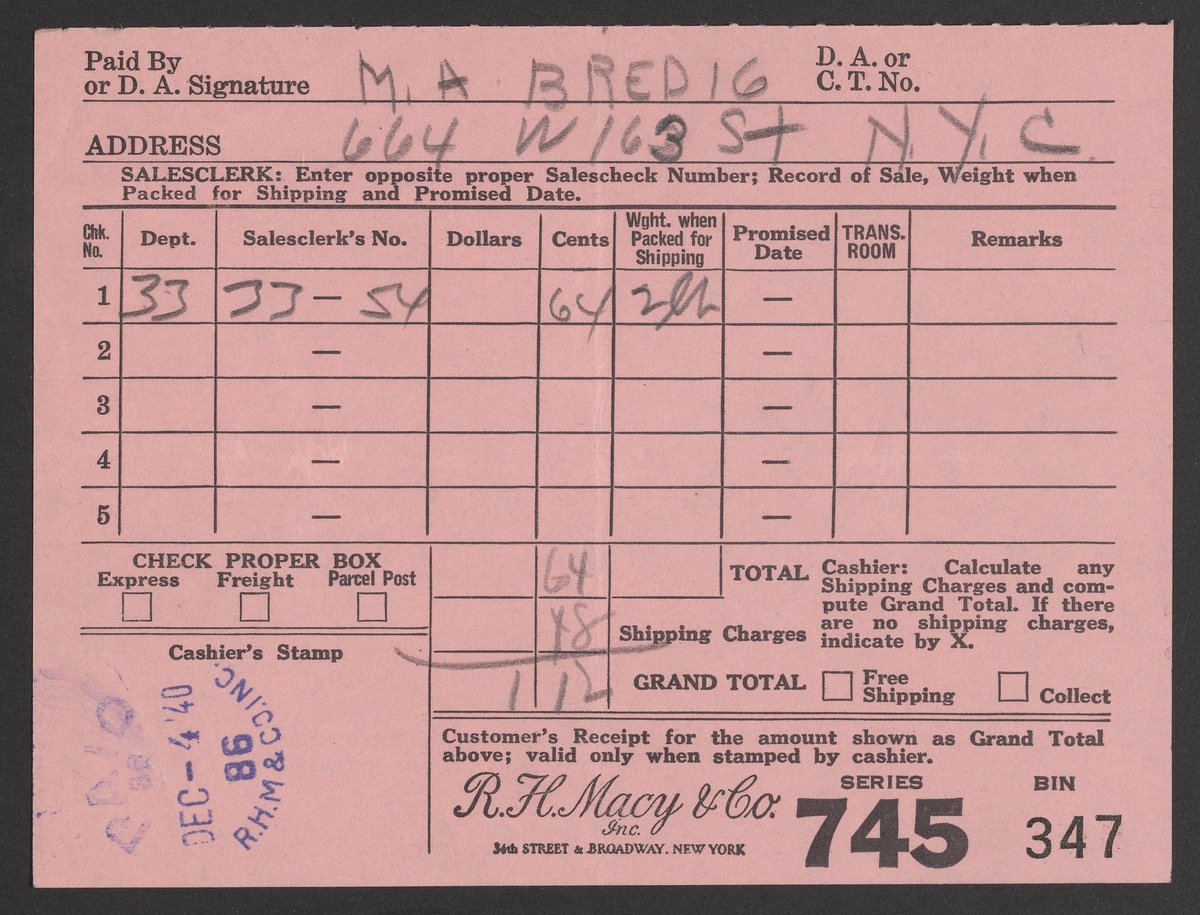 Paid By
or D. A. Signature M. A BREDIG D. A. or
C. T. No.
ADDRESS 664 W 163 St N.Y.C.
SALESCLERK: Enter opposite proper Salescheck Number; Record of Sale, Weight when
Packed for Shipping and Promised Date.
Chk. No. Dept. Salesclerk's No. Dollars Cents Wght. when Packed for Shipping Promised Date TRANS. ROOM Remarks
1 33 33 — 54 64 —
2 — —
3 — —
4 — —
5 — —
CHECK PROPER BOX
Express Freight Parcel Post
64 TOTAL
48 Shipping Charges
1 12 GRAND TOTAL
Cashier: Calculate any
Shipping Charges and com-
pute Grand Total. If there
are no shipping charges,
indicate by X.
Free Shipping Collect
Cashier's Stamp
DEC - 4 '40
86
R.H.M & CO. INC.
Customer's Receipt for the amount shown as Grand Total
above; valid only when stamped by cashier.
R. H. Macy & Co.
Inc.
34th STREET & BROADWAY. NEW YORK
SERIES
745
BIN
347